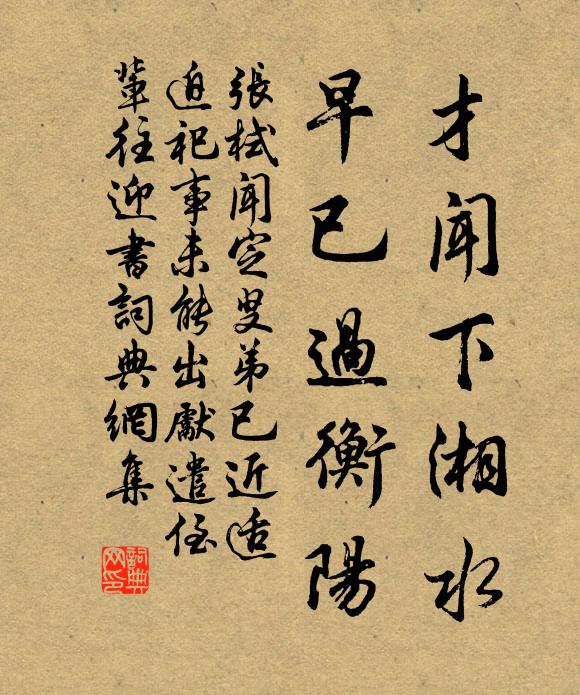 才聞下湘水
早已過衡陽
張栻聞定叟弟已近适
迫祀事未能出獻遣侄
輩往迎書詞典網集
詞典
网印